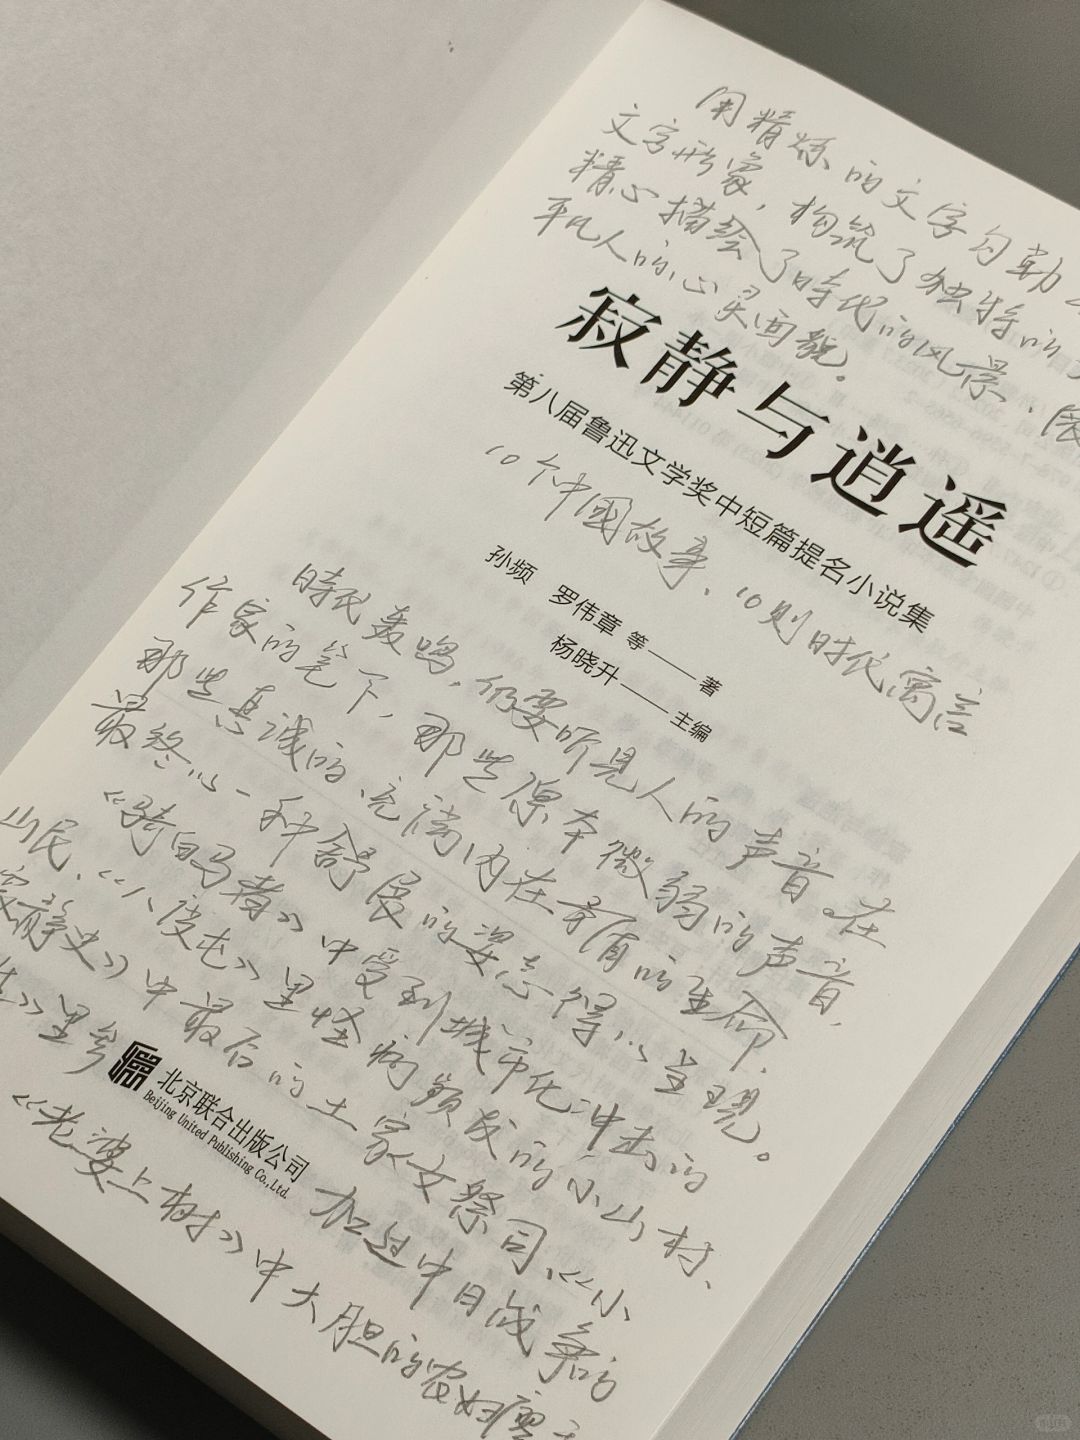 用精炼的文字勾勒
文字形象，构筑了独特的
精心描绘了時代的风景、展
平凡人的心灵面貌。
寂静与逍遥
第八届鲁迅文学奖中短篇提名小说集
10个中國故事、10则時代寓言
孙频 罗伟章 等——著
杨晓升——主编
時代轰鸣，仍要听見人的声音。在
作家的笔下，那些原本微弱的声音，
那些真诚的、充满内在矛盾的生命，
最终以一种舒展的姿态得以呈现。
《骑白马者》中受到城市化冲击的
山民、《八度屯》里怪病频发的小山村、
寂静史》中最后的土家文祭司、《小
》里参加过中日战争的
北京联合出版公司
Beijing United Publishing Co.,Ltd.
《老婆上树》中大胆的农妇廖